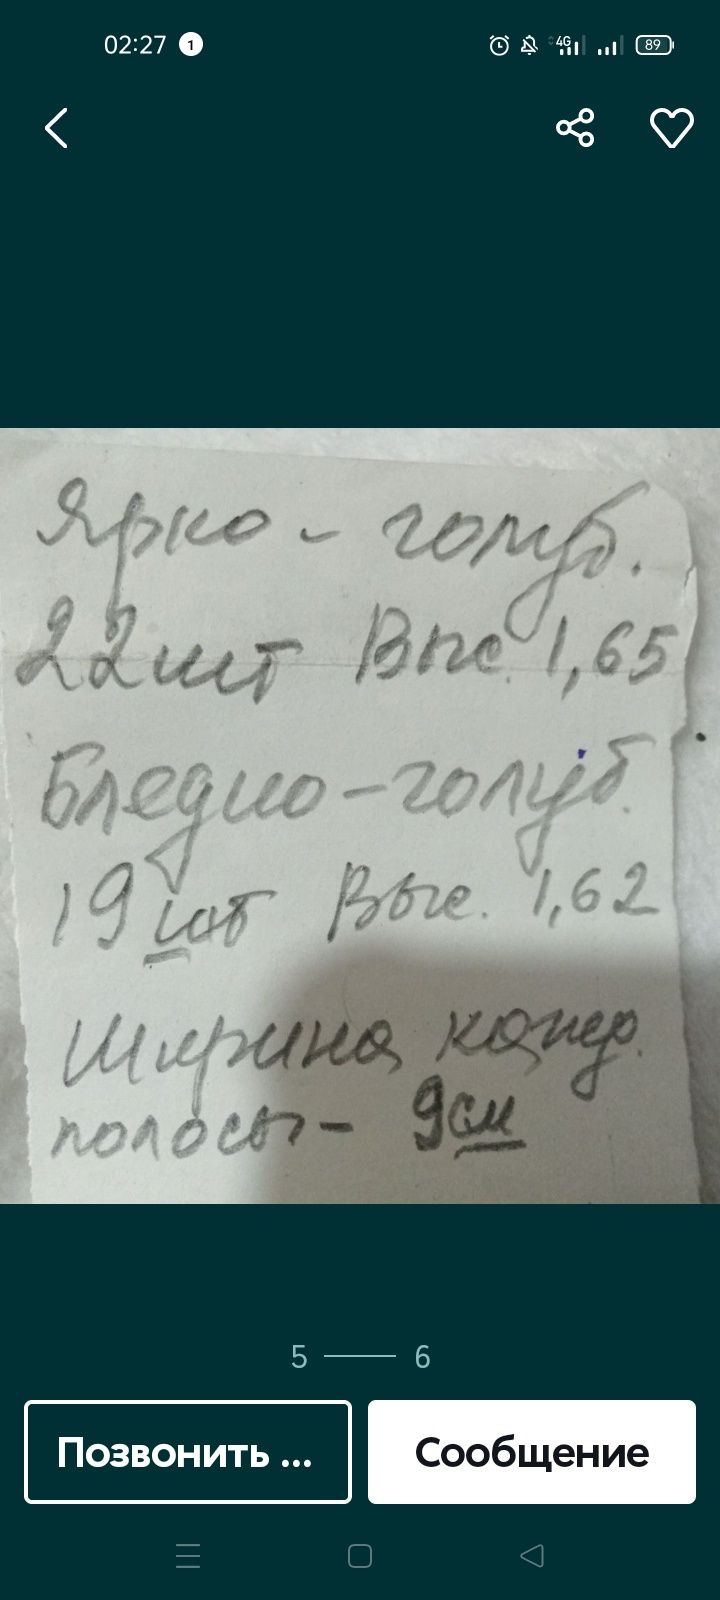 02:27 1 4G 89
Ярко - голуб.
22шт Выс. 1,65
Бледно - голуб.
19 шт Выс. 1,62
Ширина кажд.
полосы - 9см
5 6
Позвонить ... Сообщение